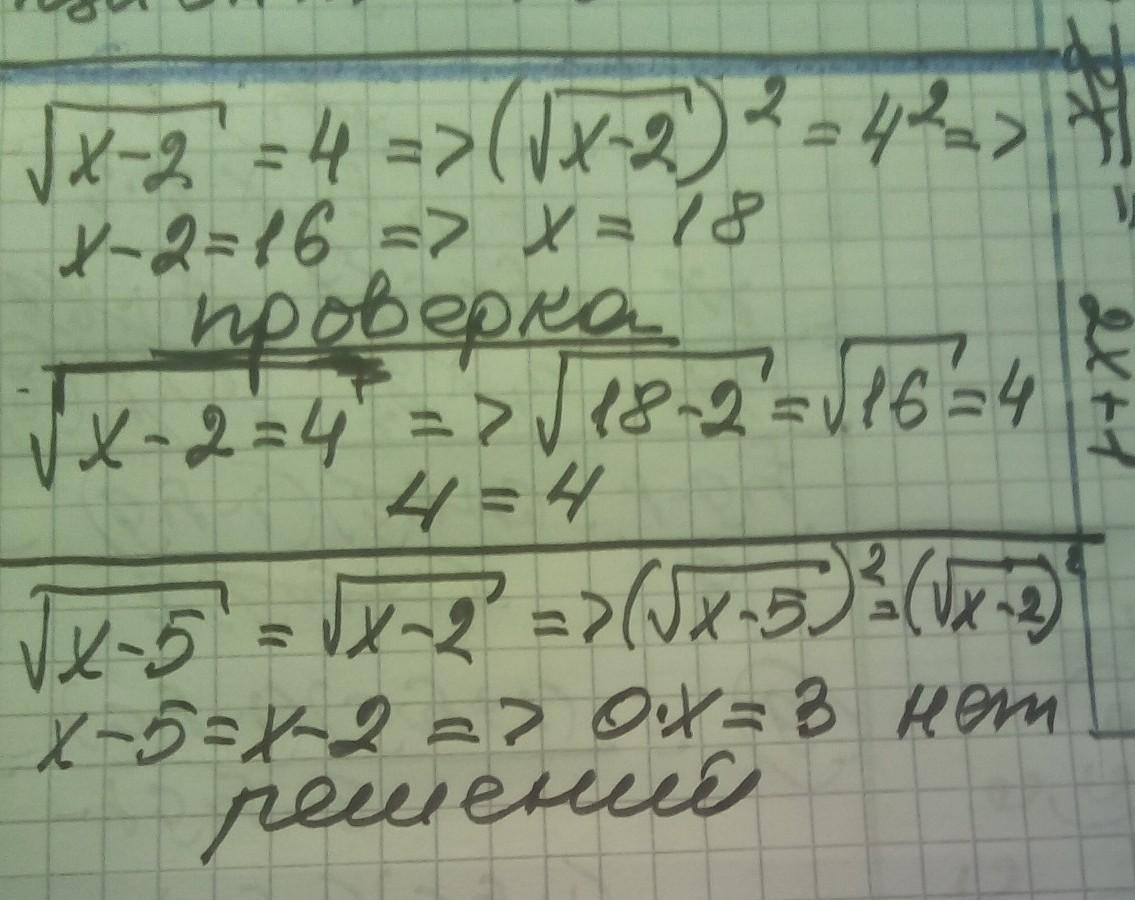 √(x-2) = 4 => (√(x-2))² = 4² =>
x-2=16 => x = 18
проверка
√(x-2=4) => √(18-2) = √16 = 4
4 = 4
√(x-5) = √(x-2) => (√(x-5))² = (√(x-2))²
x-5=x-2 => 0·x=3 нет
решений
2x+1